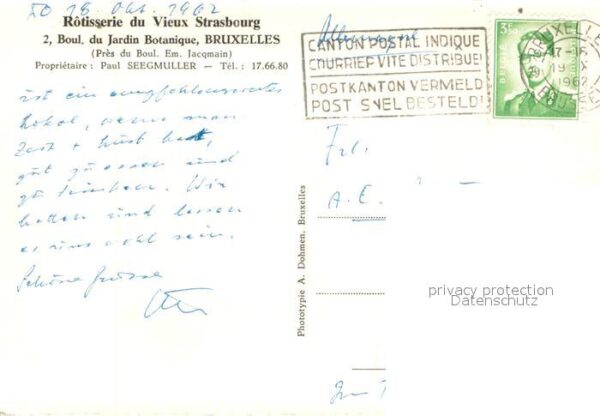 19. Okt. 1962
Rôtisserie du Vieux Strasbourg
2, Boul. du Jardin Botanique, BRUXELLES
(Près du Boul. Em. Jacqmain)
Propriétaire : Paul SEEGMULLER — Tél. : 17.66.80
ist ein empfehlenswertes
Lokal, wenn man
Zeit + Lust hat,
gut zu essen und
zu trinken. Wir
hatten und lassen
es uns wohl sein.
Schöne Grüsse
Phototypie A. Dohmen, Bruxelles
Allemagne
CANTON POSTAL INDIQUE
COURRIER VITE DISTRIBUE!
POSTKANTON VERMELD
POST SNEL BESTELD!
3F50
BRUXELLE
17-18
19 X
1962
BRUSSEL
Frl.
A. E.
privacy protection
Datenschutz